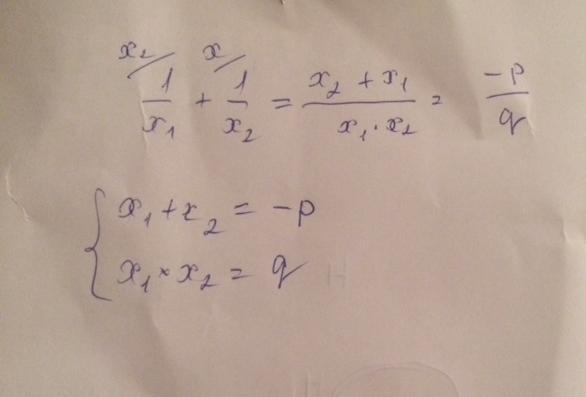 x₂/ x/
1/x₁ + 1/x₂ = (x₂ + x₁)/(x₁ · x₂) = -p/q
{ x₁ + x₂ = -p
x₁ × x₂ = q